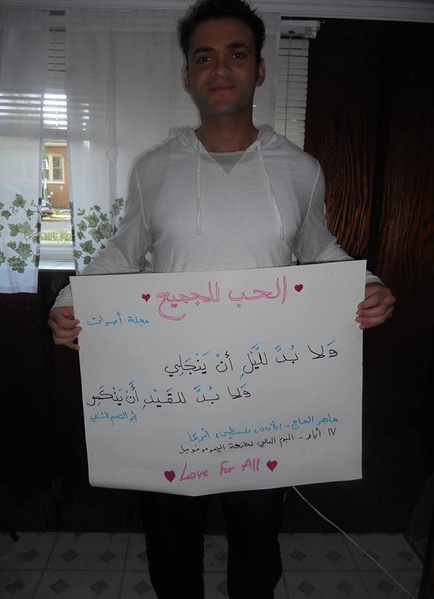 الحب للجميع
مجلة أصوات
وَلا بُدَّ لِلَّيْلِ أنْ يَنْجَلِي
وَلا بُدَّ للقَيْدِ أَنْ يَنْكَسِر
أبو القاسم الشابي
ماهر الحاج - الأردن، فلسطين، أمريكا
١٧ أيار - اليوم العالمي لمكافحة الهوموفوبيا
Love For All